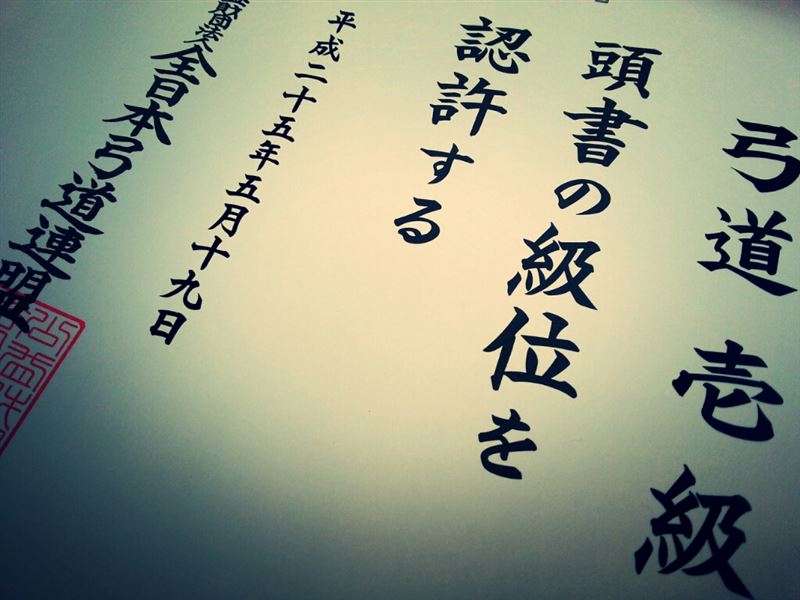 弓道壱級
頭書の級位を
認許する
平成二十五年五月十九日
財団法人全日本弓道連盟